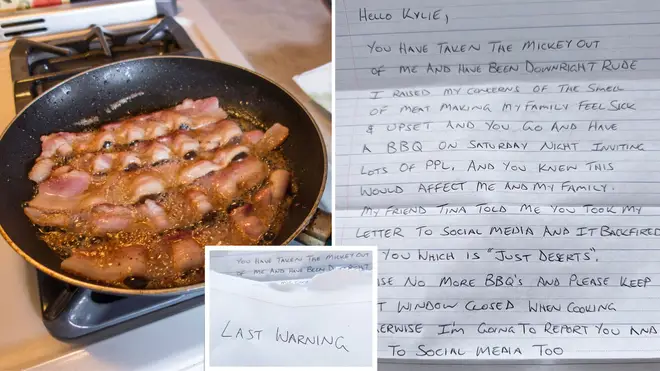 Hello Kylie,
You have taken the mickey out
of me and have been downright rude
I raised my concerns of the smell
of meat making my family feel sick
& upset and you go and have
a BBQ on Saturday night inviting
lots of ppl, and you knew this
would affect me and my family.
My friend Tina told me you took my
letter to social media and it backfired
you which is "just deserts".
no more BBQ's and please keep
window closed when cooking
I'm going to report you and
to social media too
You have taken the mickey out
of me and have been downright
Last Warning